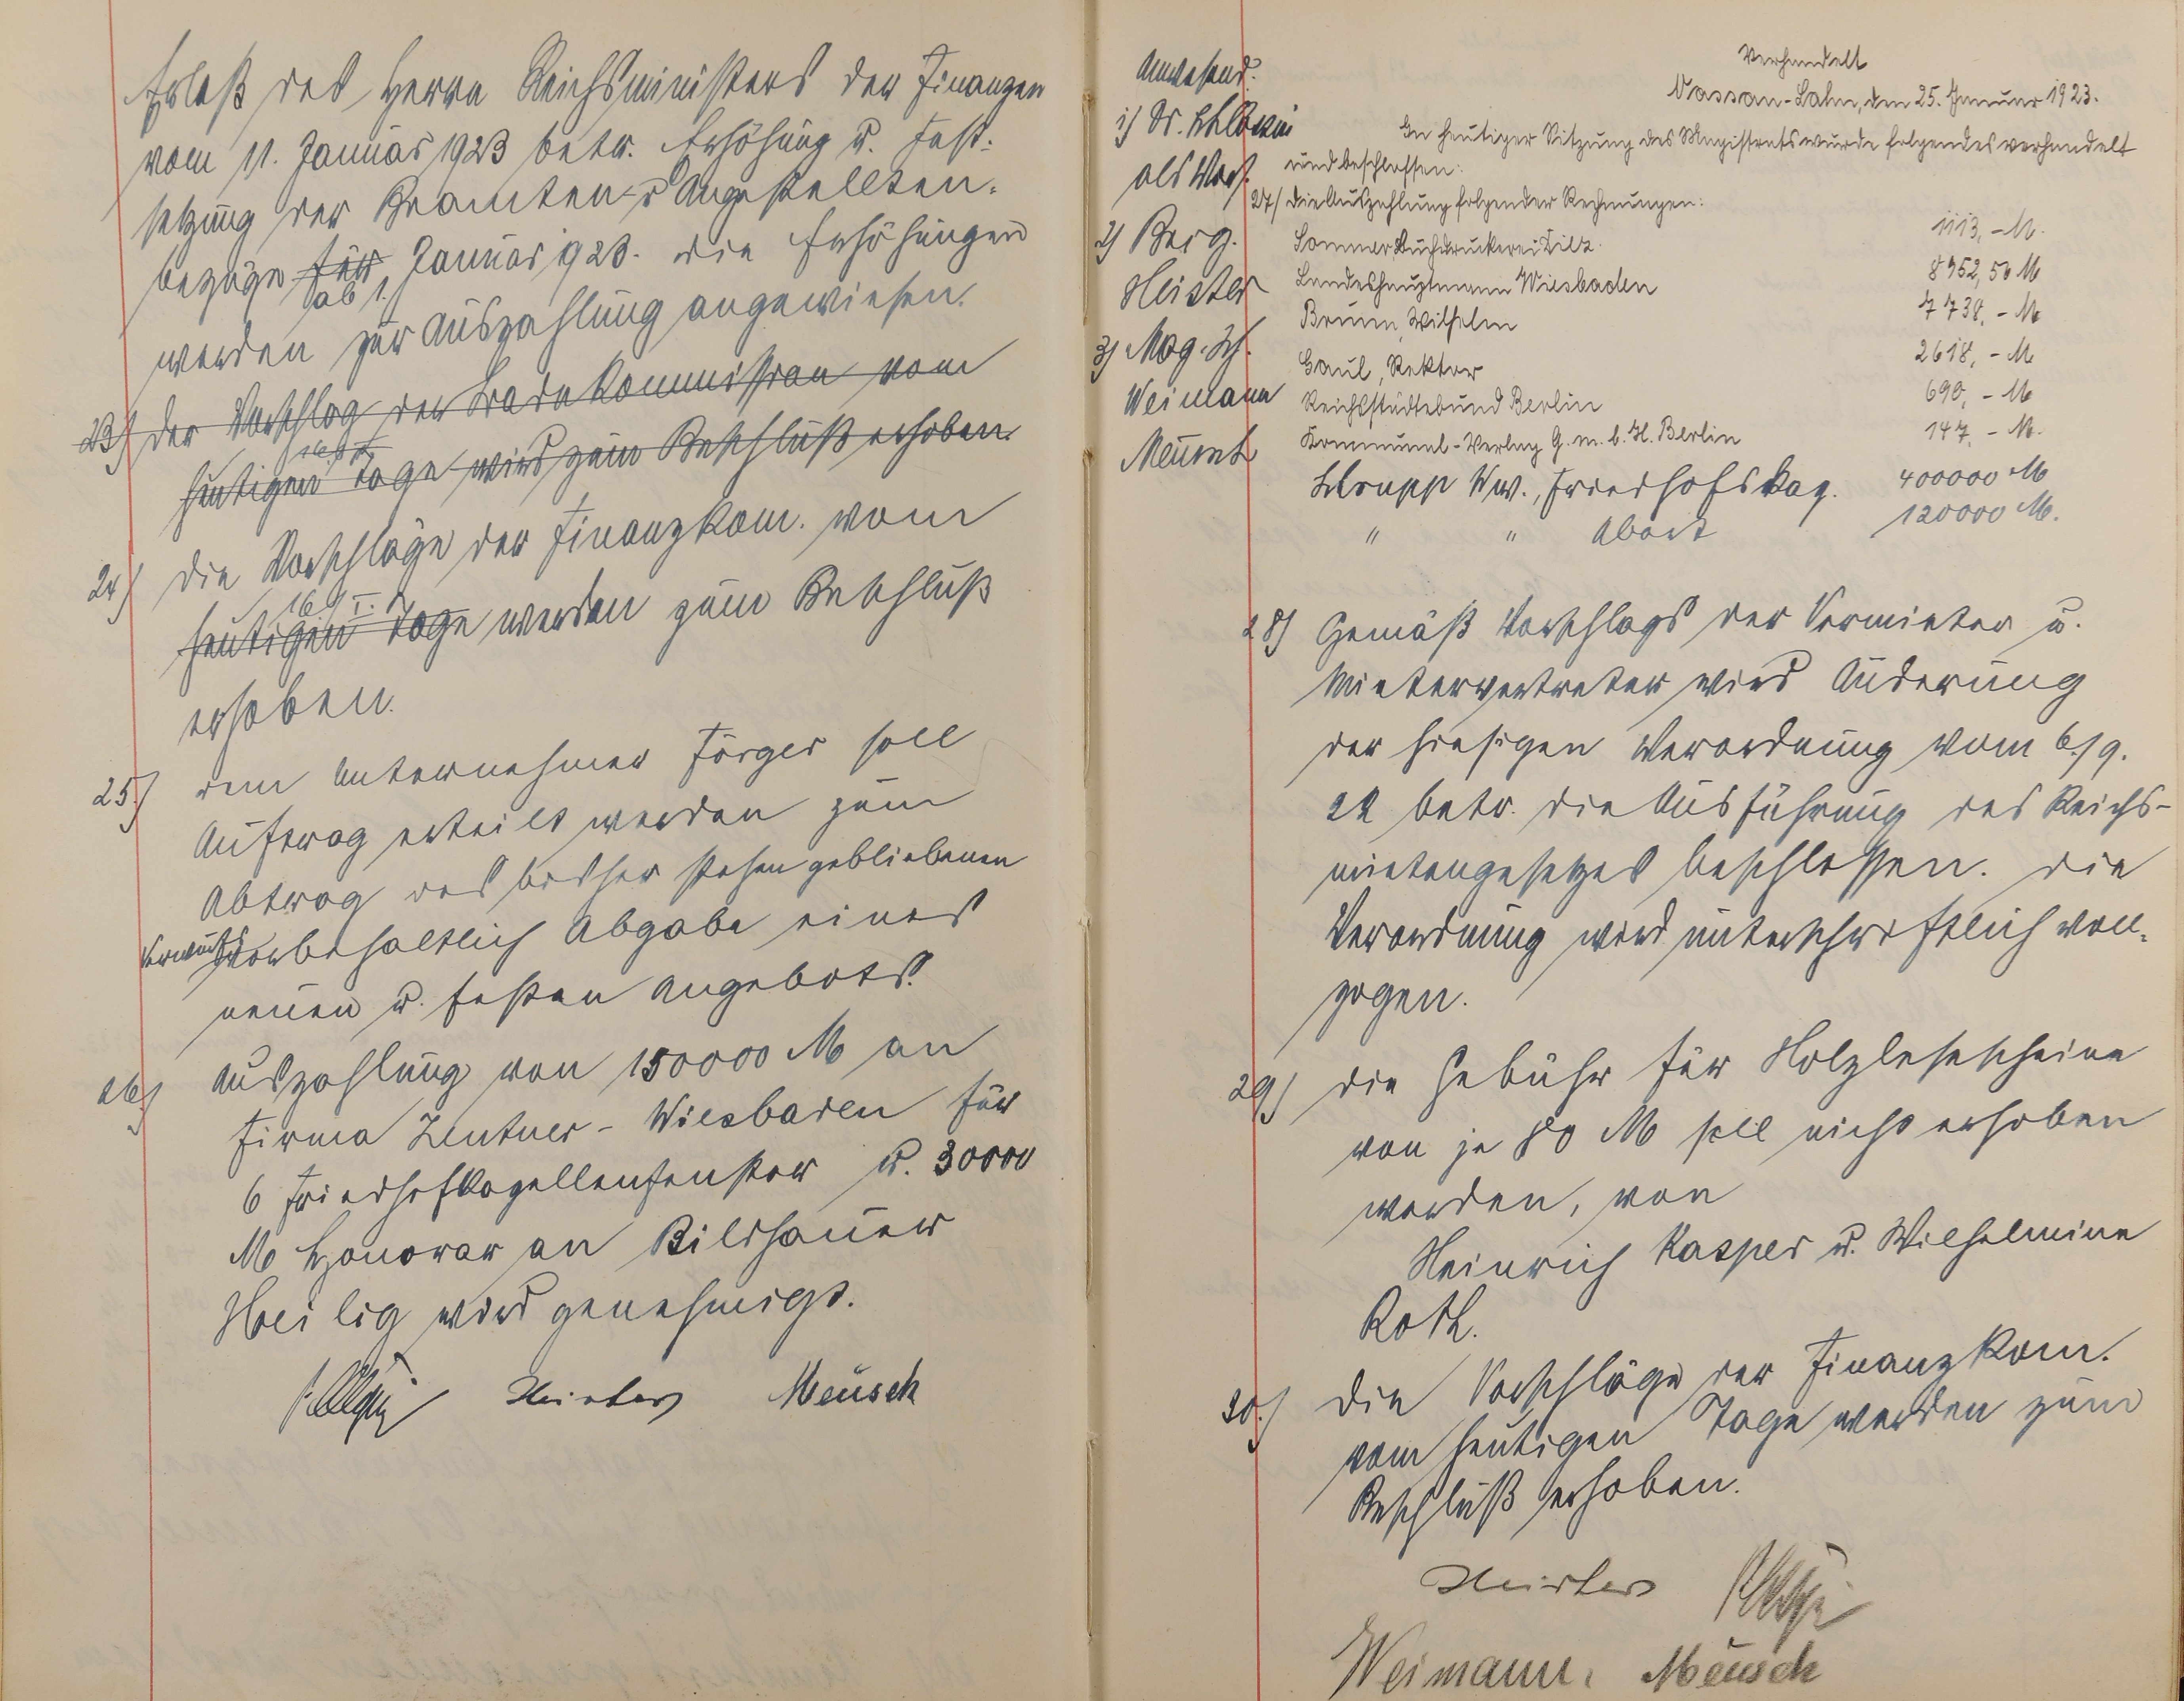 Erlaß des Herrn Reichsministers der Finanzen
vom 11. Januar 1923 betr. Erhöhung u. Fest-
setzung der Beamten- u Angestellten-
bezüge für Januar 1923. die Erhöhungen
ab 1.
werden zur Auszahlung angewiesen.
23) Der Vorschlag der Badekommission vom
heutigen Tage wird zum Beschluß erhoben.
24) Die Vorschläge der Finanzkom. vom
16/I.
heutigen Tage werden zum Beschluß
erhoben.
25) dem Unternehmer Jörger soll
Auftrag erteilt werden zum
Abtrag des bisher stehen gebliebenen
vorbehaltlich Abgabe eines
neuen u. festen Angebots.
26) Auszahlung von 150000 M an
Firma Zentner-Wiesbaden für
6 Friedhofkapellenfenster u. 30000
M Honorar an Bildhauer
Heilig wird genehmigt.
Meusch
Anwesend:
1) Dr.
als Vors.
2) Beig.
3) Mag. Sch.
Weimann
Meusch
Verhandelt
Nassau-Lahn, den 25. Januar 1923.
In heutiger Sitzung des Magistrats wurde folgendes verhandelt
und beschlossen:
27/ Die Auszahlung folgender Rechnungen:
Sommer, Buchdruckerei Diez. 1113,- M.
Landeshauptmann Wiesbaden 8952,50 M
Bruun, Wilhelm 7738,- M
Gaul, Rektor 2618,- M
Reichsstädtebund Berlin 690,- M
Kommunal-Verlag G.m.b.H. Berlin 147,- M.
Schrupp Ww., Friedhofskap. 400000 M
" " Abort 120000 M.
28) Gemäß Vorschlags der Vermieter u.
Mietervertreter wird Änderung
der hiesigen Verordnung vom 6/9.
22 betr. die Ausführung des Reichs-
mietengesetzes beschlossen. Die
Verordnung wird unterschriftlich voll-
zogen.
29) Die Gebühr für Holzlesescheine
von je 80 M soll nicht erhoben
werden, von
Heinrich Kasper u. Wilhelmine
Roth.
30.) Die Vorschläge der Finanzkom.
vom heutigen Tage werden zum
Beschluß erhoben.
Weimann. Meusch